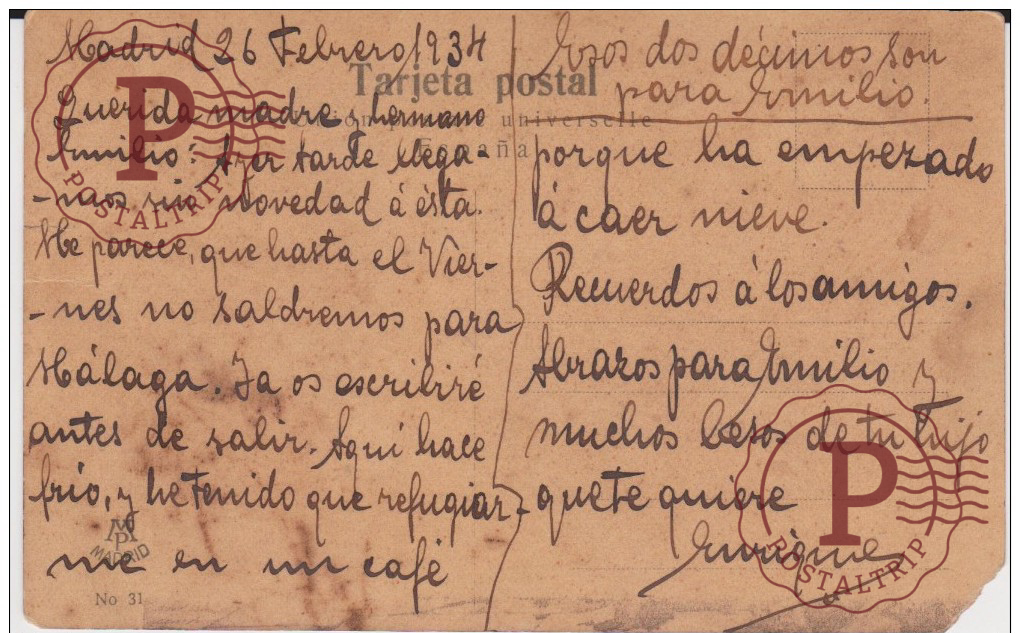 Madrid 26 Febrero 1934
Tarjeta postal
Querida madre y hermano
universelle
España
Emilio: Ayer tarde llega-
-mos sin novedad á ésta.
Me parece, que hasta el Vier-
-nes no saldremos para
Málaga. Ya os escribiré
antes de salir. Aquí hace
frío, y he tenido que refugiar-
me en un café
MADRID
No 31
Esos dos décimos son
para Emilio.
porque ha empezado
á caer nieve.
Recuerdos á los amigos.
Abrazos para Emilio y
muchos besos de tu hijo
que te quiere
Enrique
P
POSTALTRIP
P
POSTALTRIP